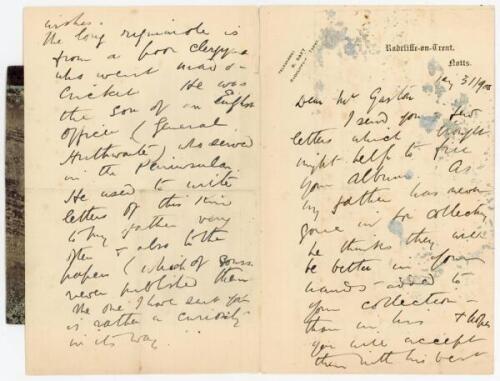 Radcliffe-on-Trent.
Notts.
Dear Mr Gaston
I send you a few
letters which I thought
might help to fill
your album. As
my father has never
gone in for collecting
he thinks they will
be better in your
hands added to
your collection -
than in his & hopes
you will accept
them with his best
wishes.
The long rigmarole is
from a poor clergyman
who went mad on
Cricket. He was
the son of an English
Officer (General
Huthwaite) who served
in the Peninsular.
He used to write
letters of this kind
to my father very
often & also to the
papers (which of course
never published them
The one I have sent you
is rather a curiosity
in its way.